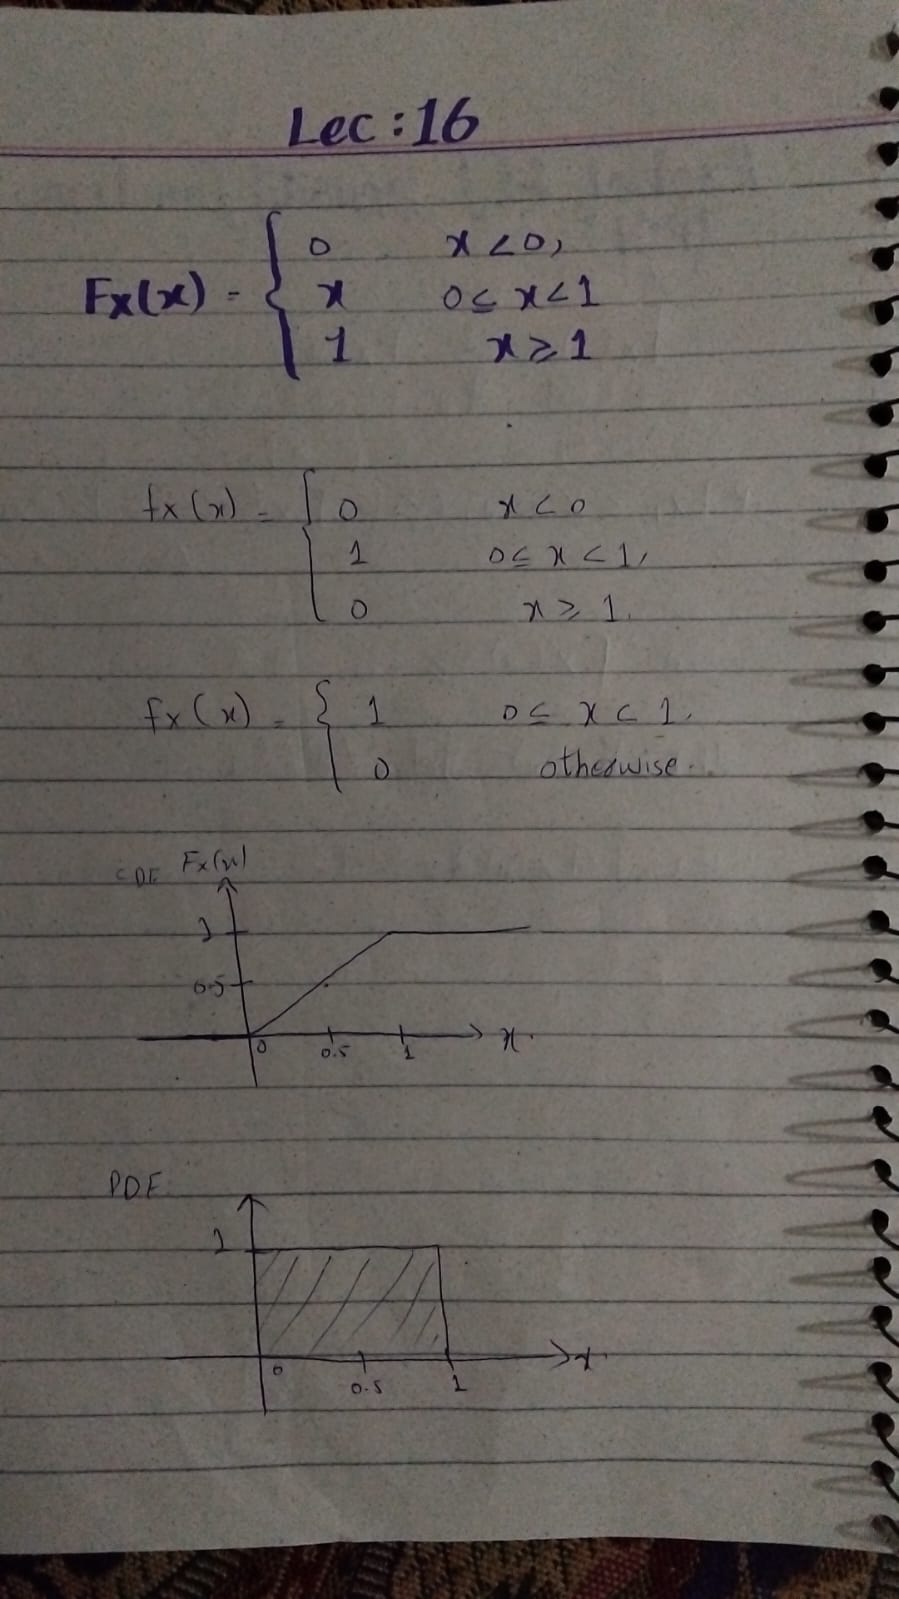 Lec : 16
Fx(x) = { 0 x < 0,
x 0 ≤ x < 1
1 x ≥ 1
fx(x) = { 0 x < 0
1 0 ≤ x < 1,
0 x ≥ 1.
fx(x) = { 1 0 ≤ x < 1.
0 otherwise.
CDF Fx(x)
1
0.5
0 0.5 1 x.
PDF
1
0 0.5 1 x.